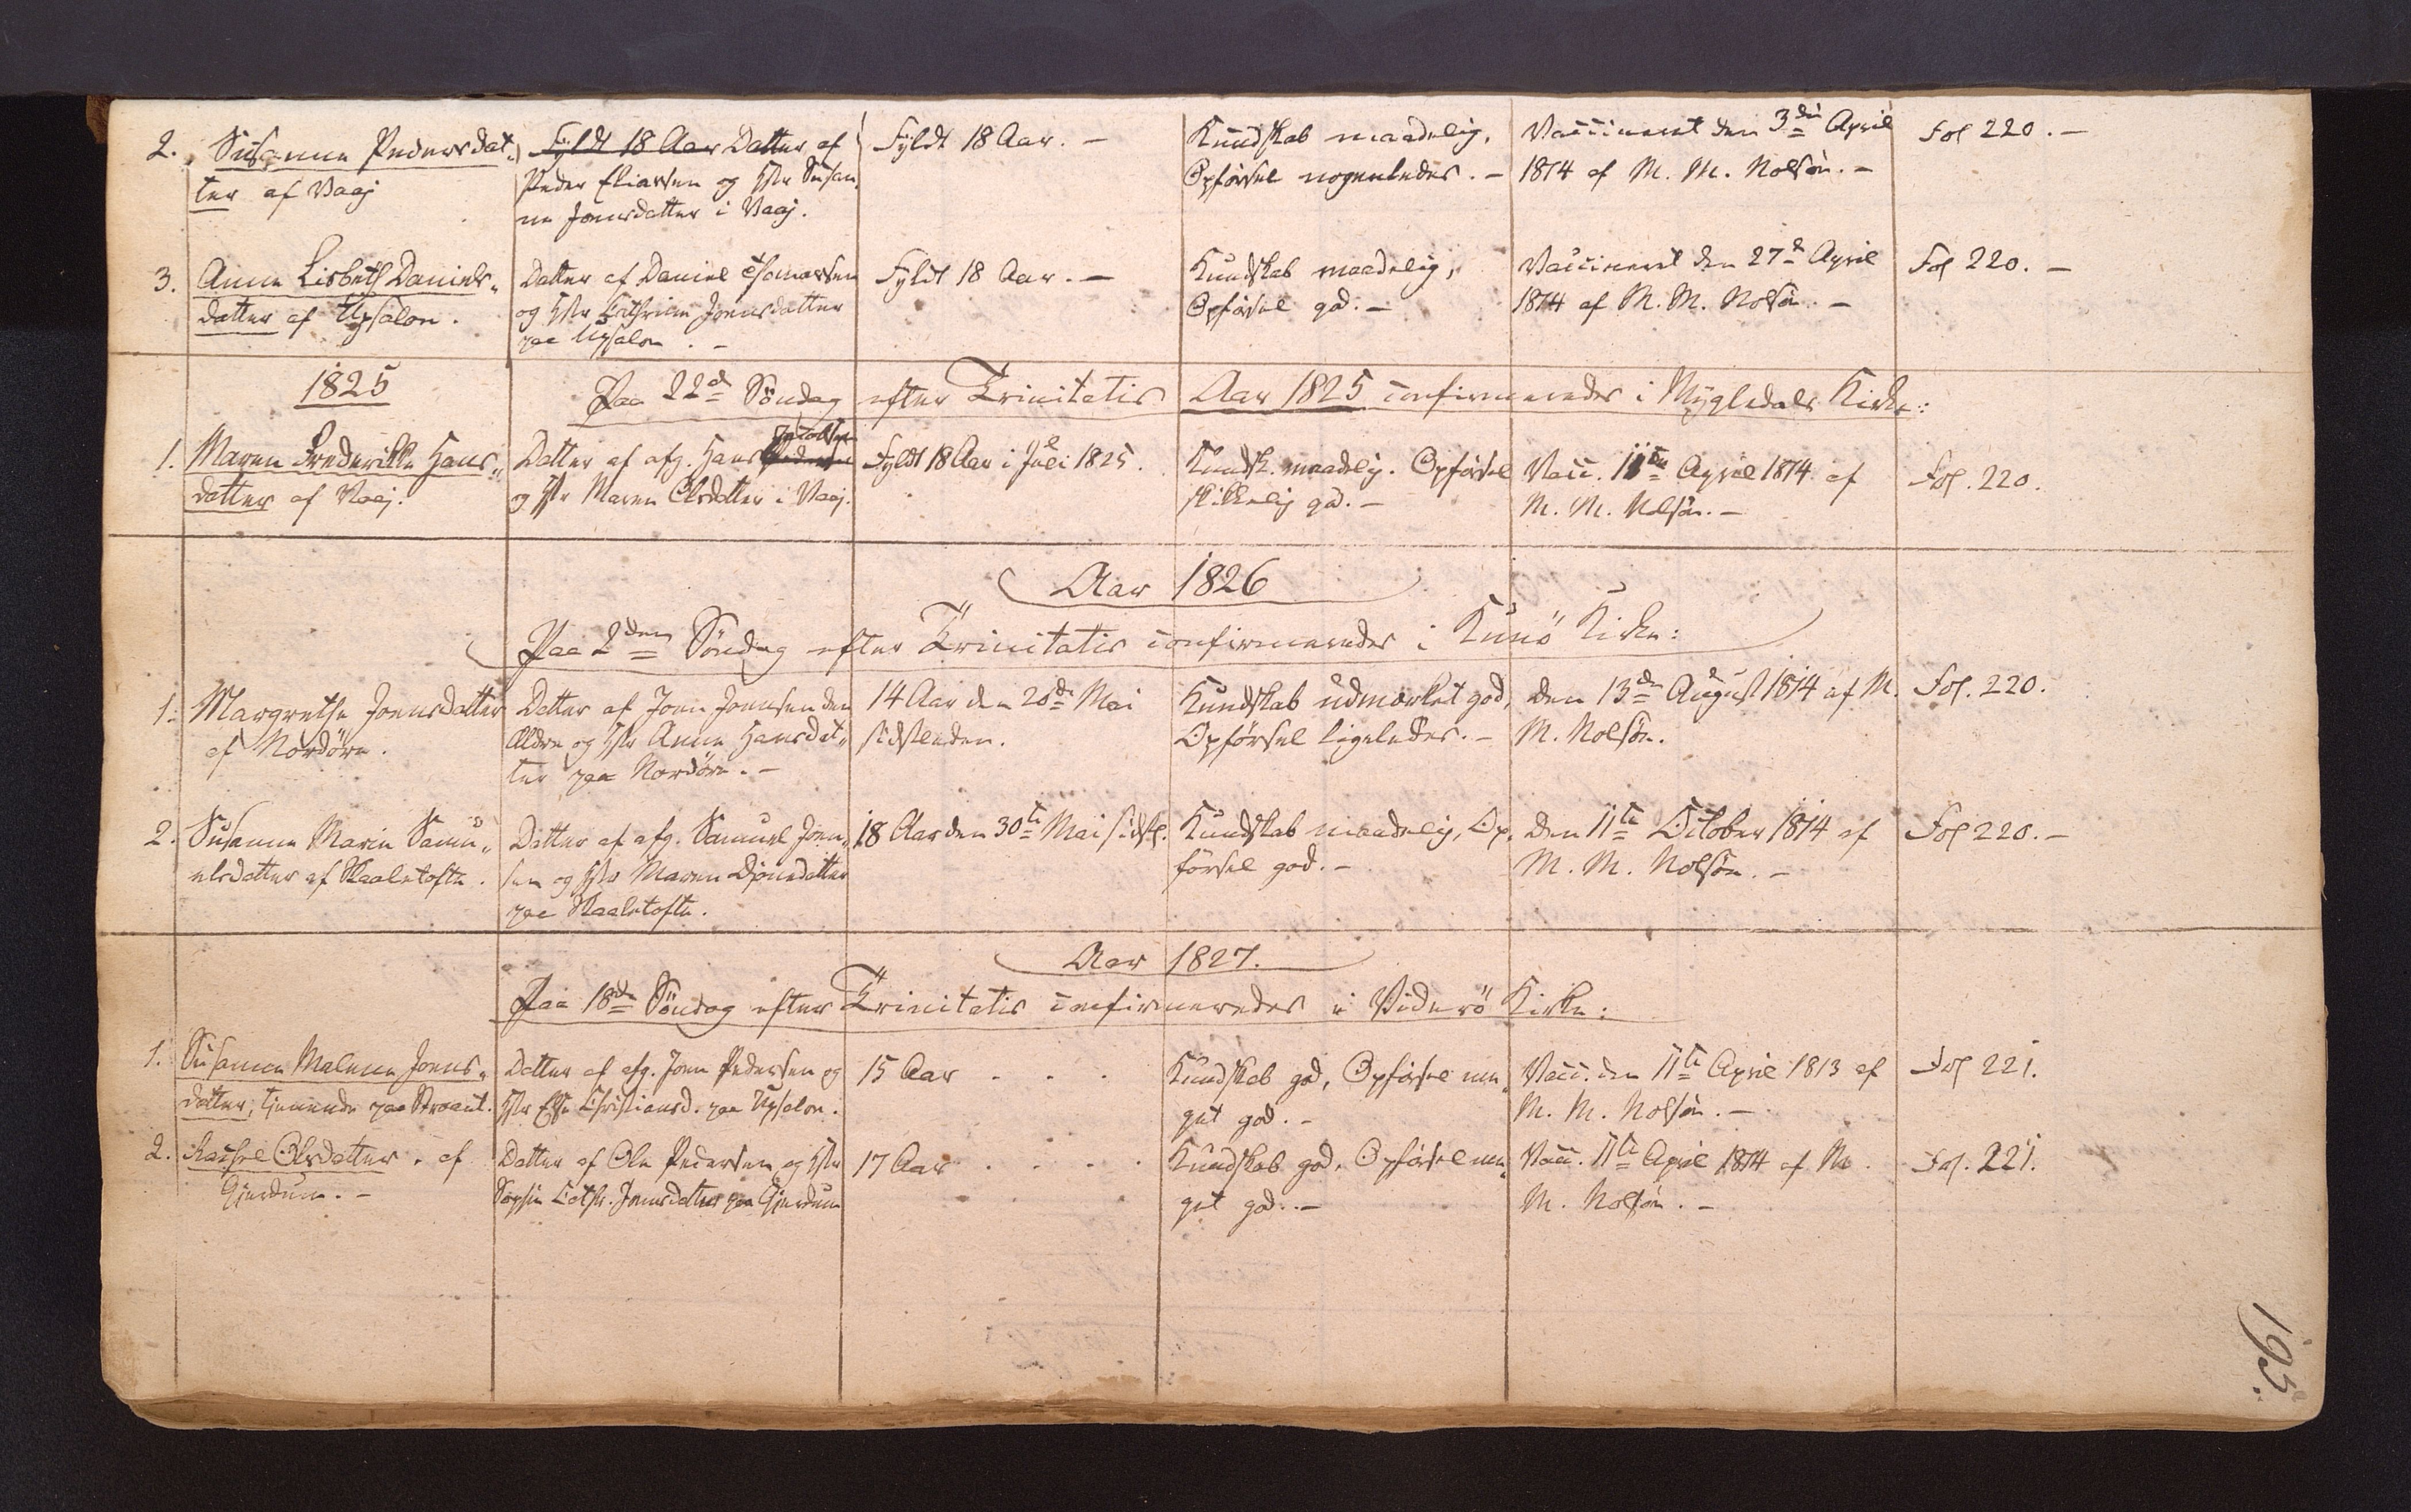 2. Susanne Pedersdat-
ter af Vaaj
Fyldt 18 Aar Datter af
Peder Eliassen og Hstr Susan,
ne Joensdatter i Vaaj.
Fyldt 18 Aar. -
Kundskab maadelig,
Opförsel nogenledes. -
Vaccineret den 3die April
1814 af M. M. Nolsön. -
Fol 220. -
3. Anne Lisbeth Daniels-
datter af Upsalon.
Datter af Daniel Thomassen
og Hstr Cathrine Joensdatter
paa Upsalon. -
Fyldt 18 Aar. -
Kundskab maadelig,
Opförsel god. -
Vaccineret den 27de April
1814 af M. M. Nolsön. -
Fol 220. -
1825
Paa 22de Söndag efter Trinitatis Aar 1825 confirmeredes i Mygledals Kirke:
1. Maren Frederikke Hans-
datter af Vaaj.
Jacobsen
Datter af afg. Hans Pedersen
og Hstr Maren Olsdatter i Vaaj.
Fyldt 18 Aar i Juli 1825.
Kundsk. maadelig. Opförsel
skikkelig god. -
Vacc. 11te April 1814 af
M. M. Nolsön. -
Fol. 220.
Aar 1826
Paa 2den Söndag efter Trinitatis confirmeredes i Kunö Kirke:
1. Margrethe Joensdatter
af Nordöre.
Datter af Joen Joensen den
Ældre og Hstr Anne Hansdat-
ter paa Nordöre. -
14 Aar den 20de Mai
sidstleden.
Kundskab udmærket god,
Opförsel ligeledes. -
den 13de August 1814 af M.
M. Nolsön.
Fol. 220.
2. Susanne Marie Samu-
elsdatter af Skaaletofte.
Datter af afg. Samuel Joen-
sen og Hstr Maren Djonedatter
paa Skaaletofte.
18 Aar den 30te Mai sidstl.
Kundskab maadelig, Op-
försel god. -
den 11te October 1814 af
M. M. Nolsön. -
Fol 220. -
Aar 1827.
Paa 18de Söndag efter Trinitatis confirmeredes i Viderö Kirke:
1. Susanna Malene Joens-
datter, tjenende paa
Datter af afg. Joen Pedersen og
Hstr Else Christiansd. paa Upsalon.
15 Aar . . .
Kundskab god, Opförsel me-
get god. -
Vacc. den 11te April 1813 af
M. M. Nolsön. -
Fol 221.
2. Rachel Olsdatter. af
Gjerdum. -
Datter af Ole Pedersen og Hstr
Sophie Cathr. Joensdatter paa Gjerdum
17 Aar . . . .
Kundskab god, Opförsel me-
get god. -
Vacc. 11te April 1814 af M.
M. Nolsön. -
Fol. 221.
195.